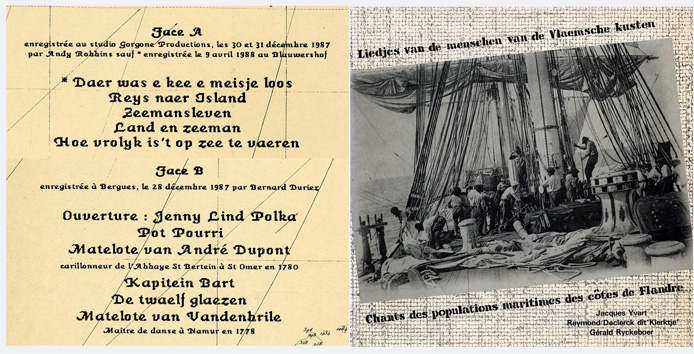 Face A
enregistrée au studio Gorgone Productions, les 30 et 31 décembre 1987
par Andy Robbins sauf * enregistrée le 9 avril 1988 au Blauwershof
* Daer was e kee e meisje loos
Reys naer Island
Zeemansleven
Land en zeeman
Hoe vrolyk is't op zee te vaeren
Face B
enregistrée à Bergues, le 28 décembre 1987 par Bernard Duriez
Ouverture : Jenny Lind Polka
Pot Pourri
Matelote van André Dupont
carillonneur de l'Abbaye St Bertein à St Omer en 1780
Kapitein Bart
De twaelf glaezen
Matelote van Vandenbrile
Maitre de danse à Namur en 1778
Liedjes van de menschen van de Vlaemsche kusten
Chants des populations maritimes des côtes de Flandre
Jacques Yvart
Raymond Declerck dit 'Klerktje'
Gérald Ryckeboer